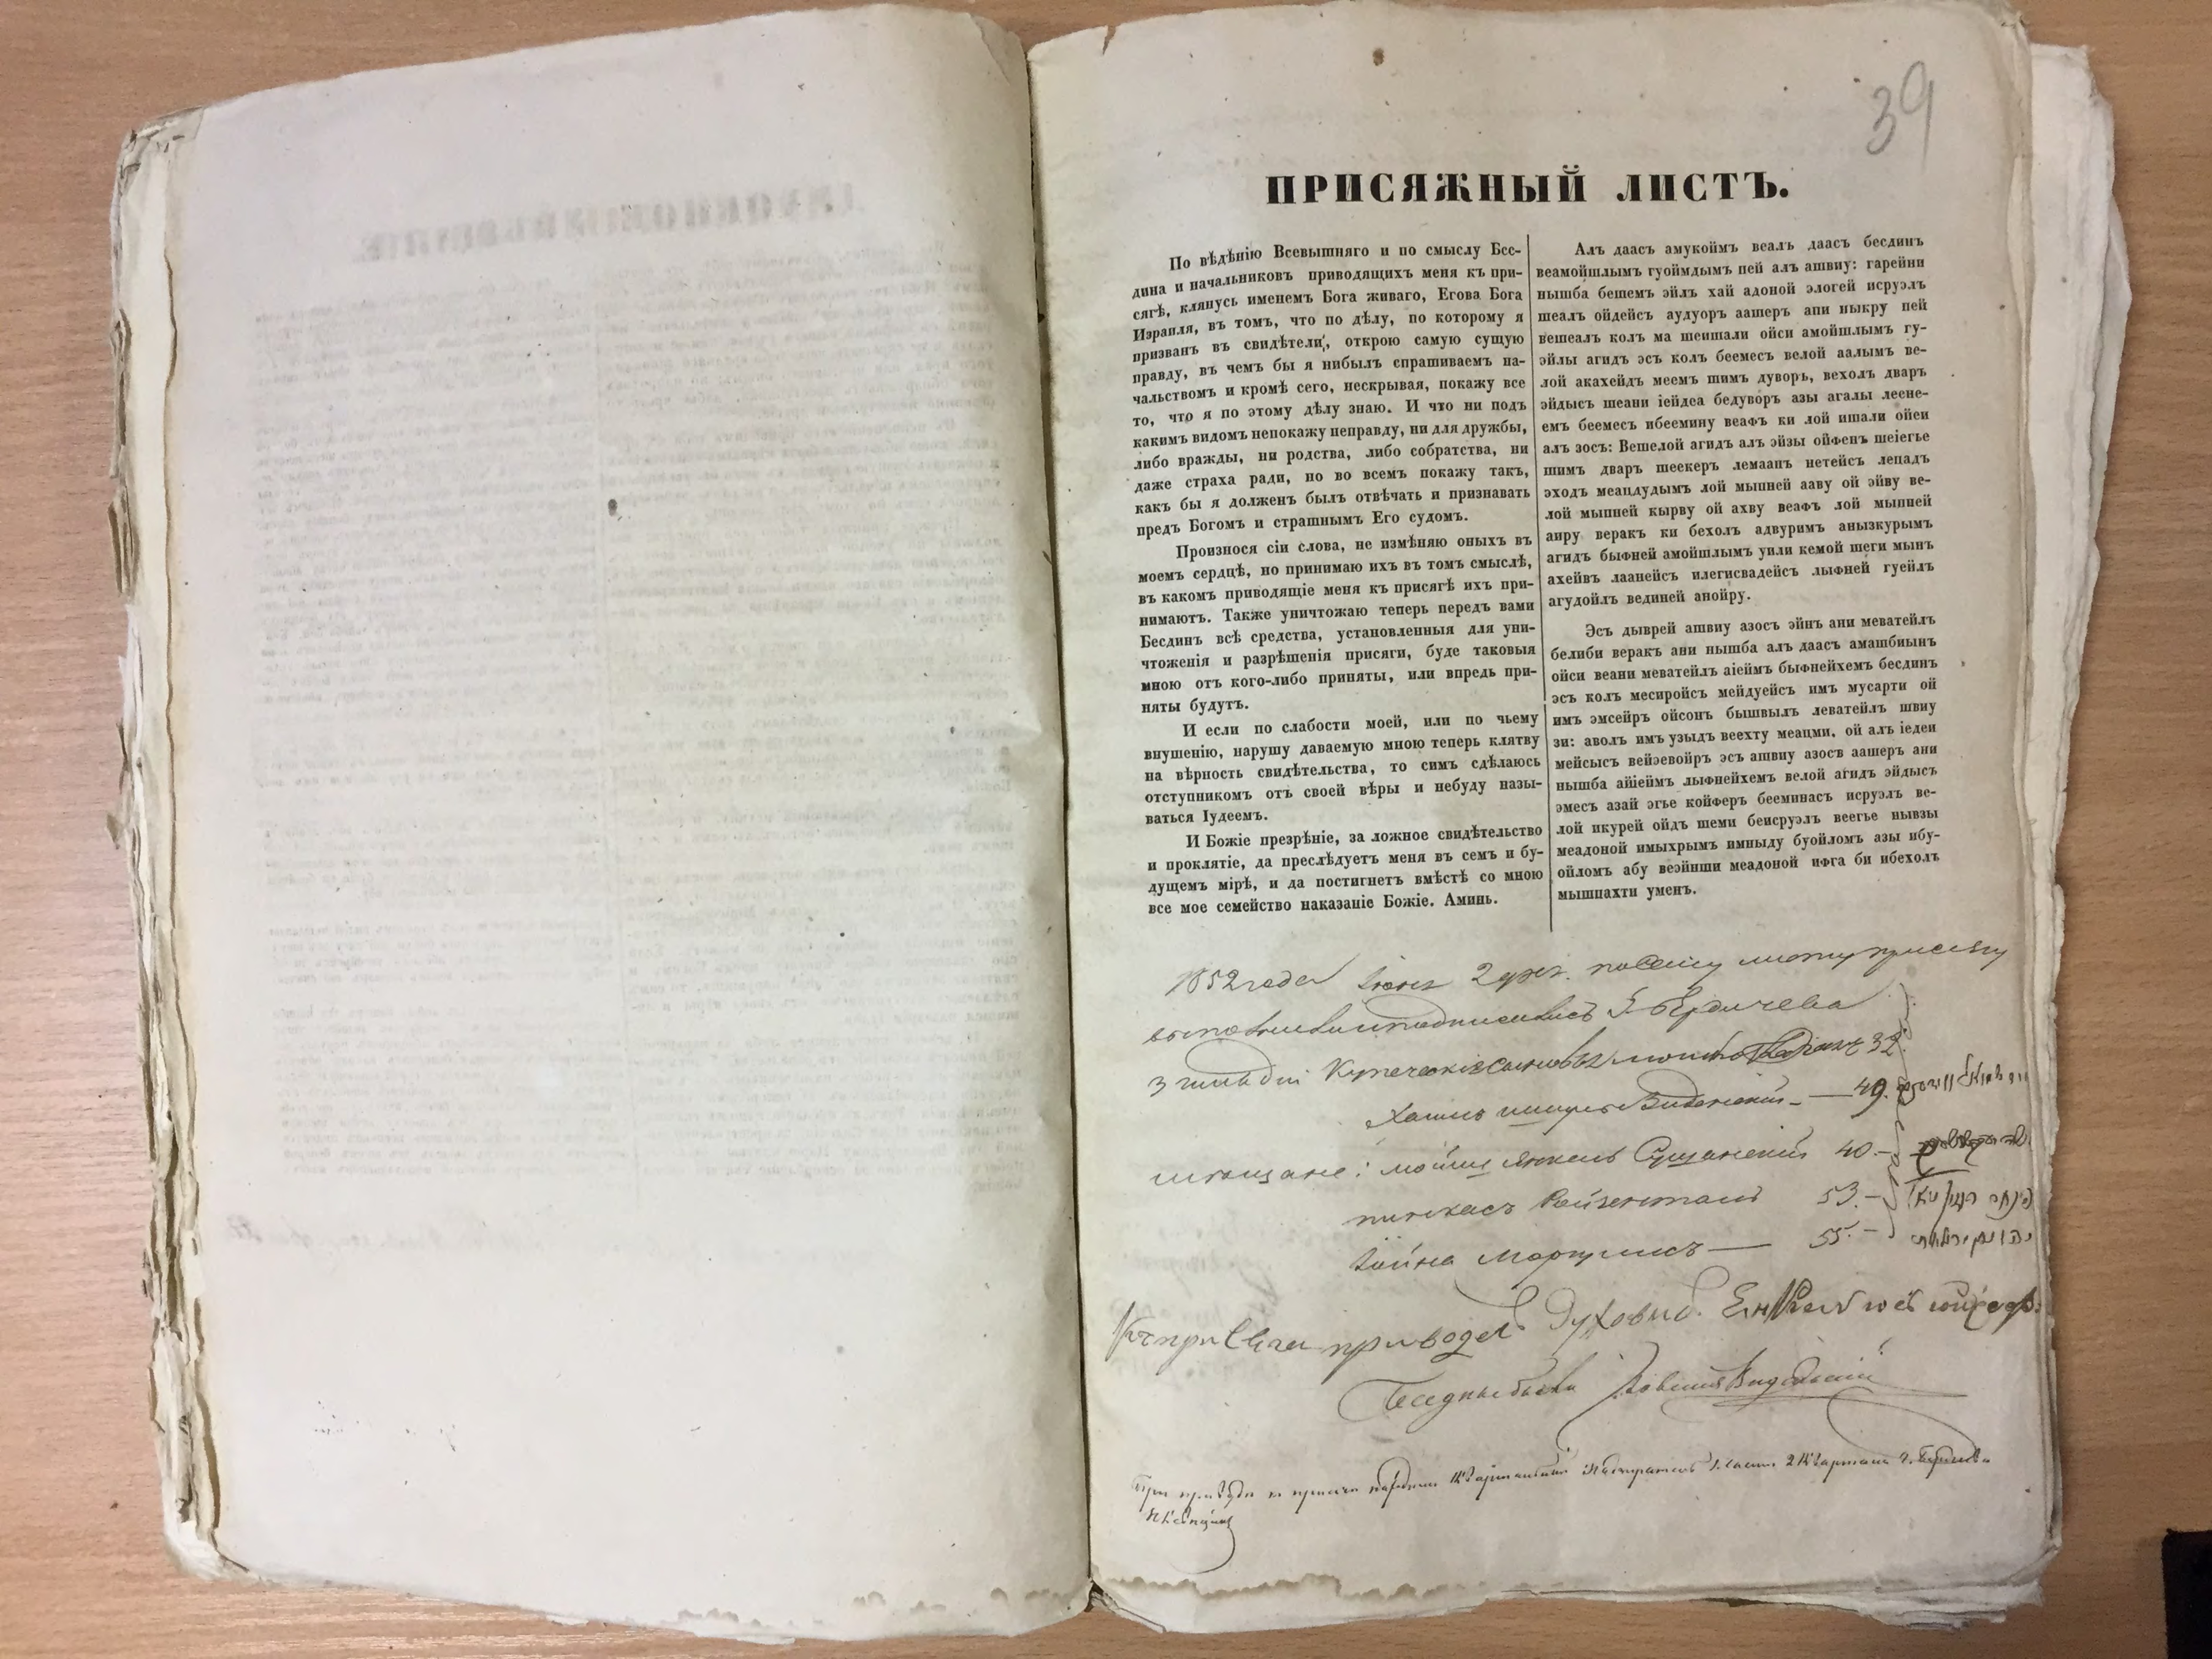 39
ПРИСЯЖНЫЙ ЛИСТЪ.
По вѣдѣнію Всевышняго и по смыслу Бес-
дина и начальниковъ приводящихъ меня къ при-
сягѣ, клянусь именемъ Бога живаго, Егова Бога
Израиля, въ томъ, что по дѣлу, по которому я
призванъ въ свидѣтели, открою самую сущую
правду, въ чемъ бы я нибылъ спрашиваемъ на-
чальствомъ и кромѣ сего, нескрывая, покажу все
то, что я по этому дѣлу знаю. И что ни подъ
какимъ видомъ непокажу неправду, ни для дружбы,
либо вражды, ни родства, либо собратства, ни
даже страха ради, но во всемъ покажу такъ,
какъ бы я долженъ былъ отвѣчать и признавать
предъ Богомъ и страшнымъ Его судомъ.
Произнося сіи слова, не измѣняю оныхъ въ
моемъ сердцѣ, но принимаю ихъ въ томъ смыслѣ,
въ какомъ приводящіе меня къ присягѣ ихъ при-
нимаютъ. Также уничтожаю теперь передъ вами
Бесдинъ всѣ средства, установленныя для уни-
чтоженія и разрѣшенія присяги, буде таковыя
мною отъ кого-либо приняты, или впредь при-
няты будутъ.
И если по слабости моей, или по чьему
внушенію, нарушу даваемую мною теперь клятву
на вѣрность свидѣтельства, то симъ сдѣлаюсь
отступникомъ отъ своей вѣры и небуду назы-
ваться Іудеемъ.
И Божіе презрѣніе, за ложное свидѣтельство
и проклятіе, да преслѣдуетъ меня въ семъ и бу-
дущемъ мірѣ, и да постигнетъ вмѣстѣ со мною
все мое семейство наказаніе Божіе. Аминь.
Алъ даасъ амукоймъ веалъ даасъ бесдинъ
веамойшлымъ гуоймдымъ пей алъ ашвиу: гарейни
нышба бешемъ эйлъ хай адоной элогей исруэлъ
шеалъ ойдейсъ аудуоръ аашеръ апи ныкру пей
вешеалъ колъ ма шеишали ойси амойшлымъ гу-
эйлы агидъ эсъ колъ беемесъ велой аалымъ ве-
лой акахейдъ меемъ шимъ дуворъ, вехолъ дваръ
эйдысъ шеани іейдеа бедуворъ азы агалы леене-
емъ беемесъ ибеемину веафъ ки лой ишали ойси
алъ зосъ: Вешелой агидъ алъ эйзы ойфенъ шеіегье
шимъ дваръ шеекеръ лемаанъ нетейсъ лецадъ
эходъ меацдудымъ лой мыпней ааву ой эйву ве-
лой мыпней кырву ой ахву веафъ лой мыпней
аиру веракъ ки бехолъ адвуримъ анызкурымъ
агидъ быфней амойшлымъ уили кемой шеги мынъ
ахейвъ лаанейсъ илегисвадейсъ лыфней гуейлъ
агудойлъ вединей анойру.
Эсъ дыврей ашвиу азосъ эйнъ ани меватейлъ
белиби веракъ ани нышба алъ даасъ амашбиынъ
ойси веани меватейлъ аіеймъ быфнейхемъ бесдинъ
эсъ колъ месиройсъ мейдуейсъ имъ мусарти ой
имъ эмсейръ ойсонъ бышвылъ леватейлъ швиу
зи: аволъ имъ узыдъ веехту меацми, ой алъ іедеи
мейсысъ вейэевойръ эсъ ашвиу азосъ аашеръ ани
нышба айіеймъ лыфнейхемъ велой агидъ эйдысъ
эмесъ азай эгье койферъ бееминасъ исруэлъ ве-
лой икурей ойдъ шеми беисруэлъ веегье нывзы
меадоной имыхрымъ имныду буойломъ азы ибу-
ойломъ абу веэйнши меадоной ифга би ибехолъ
мышпахти уменъ.
1852 года Іюня 2 дня. по сему листу присягу
выполнили и подписались Г. Бердичева
3 гильдіи Купеческіе сыновья 32
Хаимъ Виденскій — 49.
мѣщане: Мойше Янкель Сущанскій 40.—
Пинхасъ Рейзентманъ 53.—
Іойна Маргулисъ — 55.—
Къ присяге приводел Духовнъ.